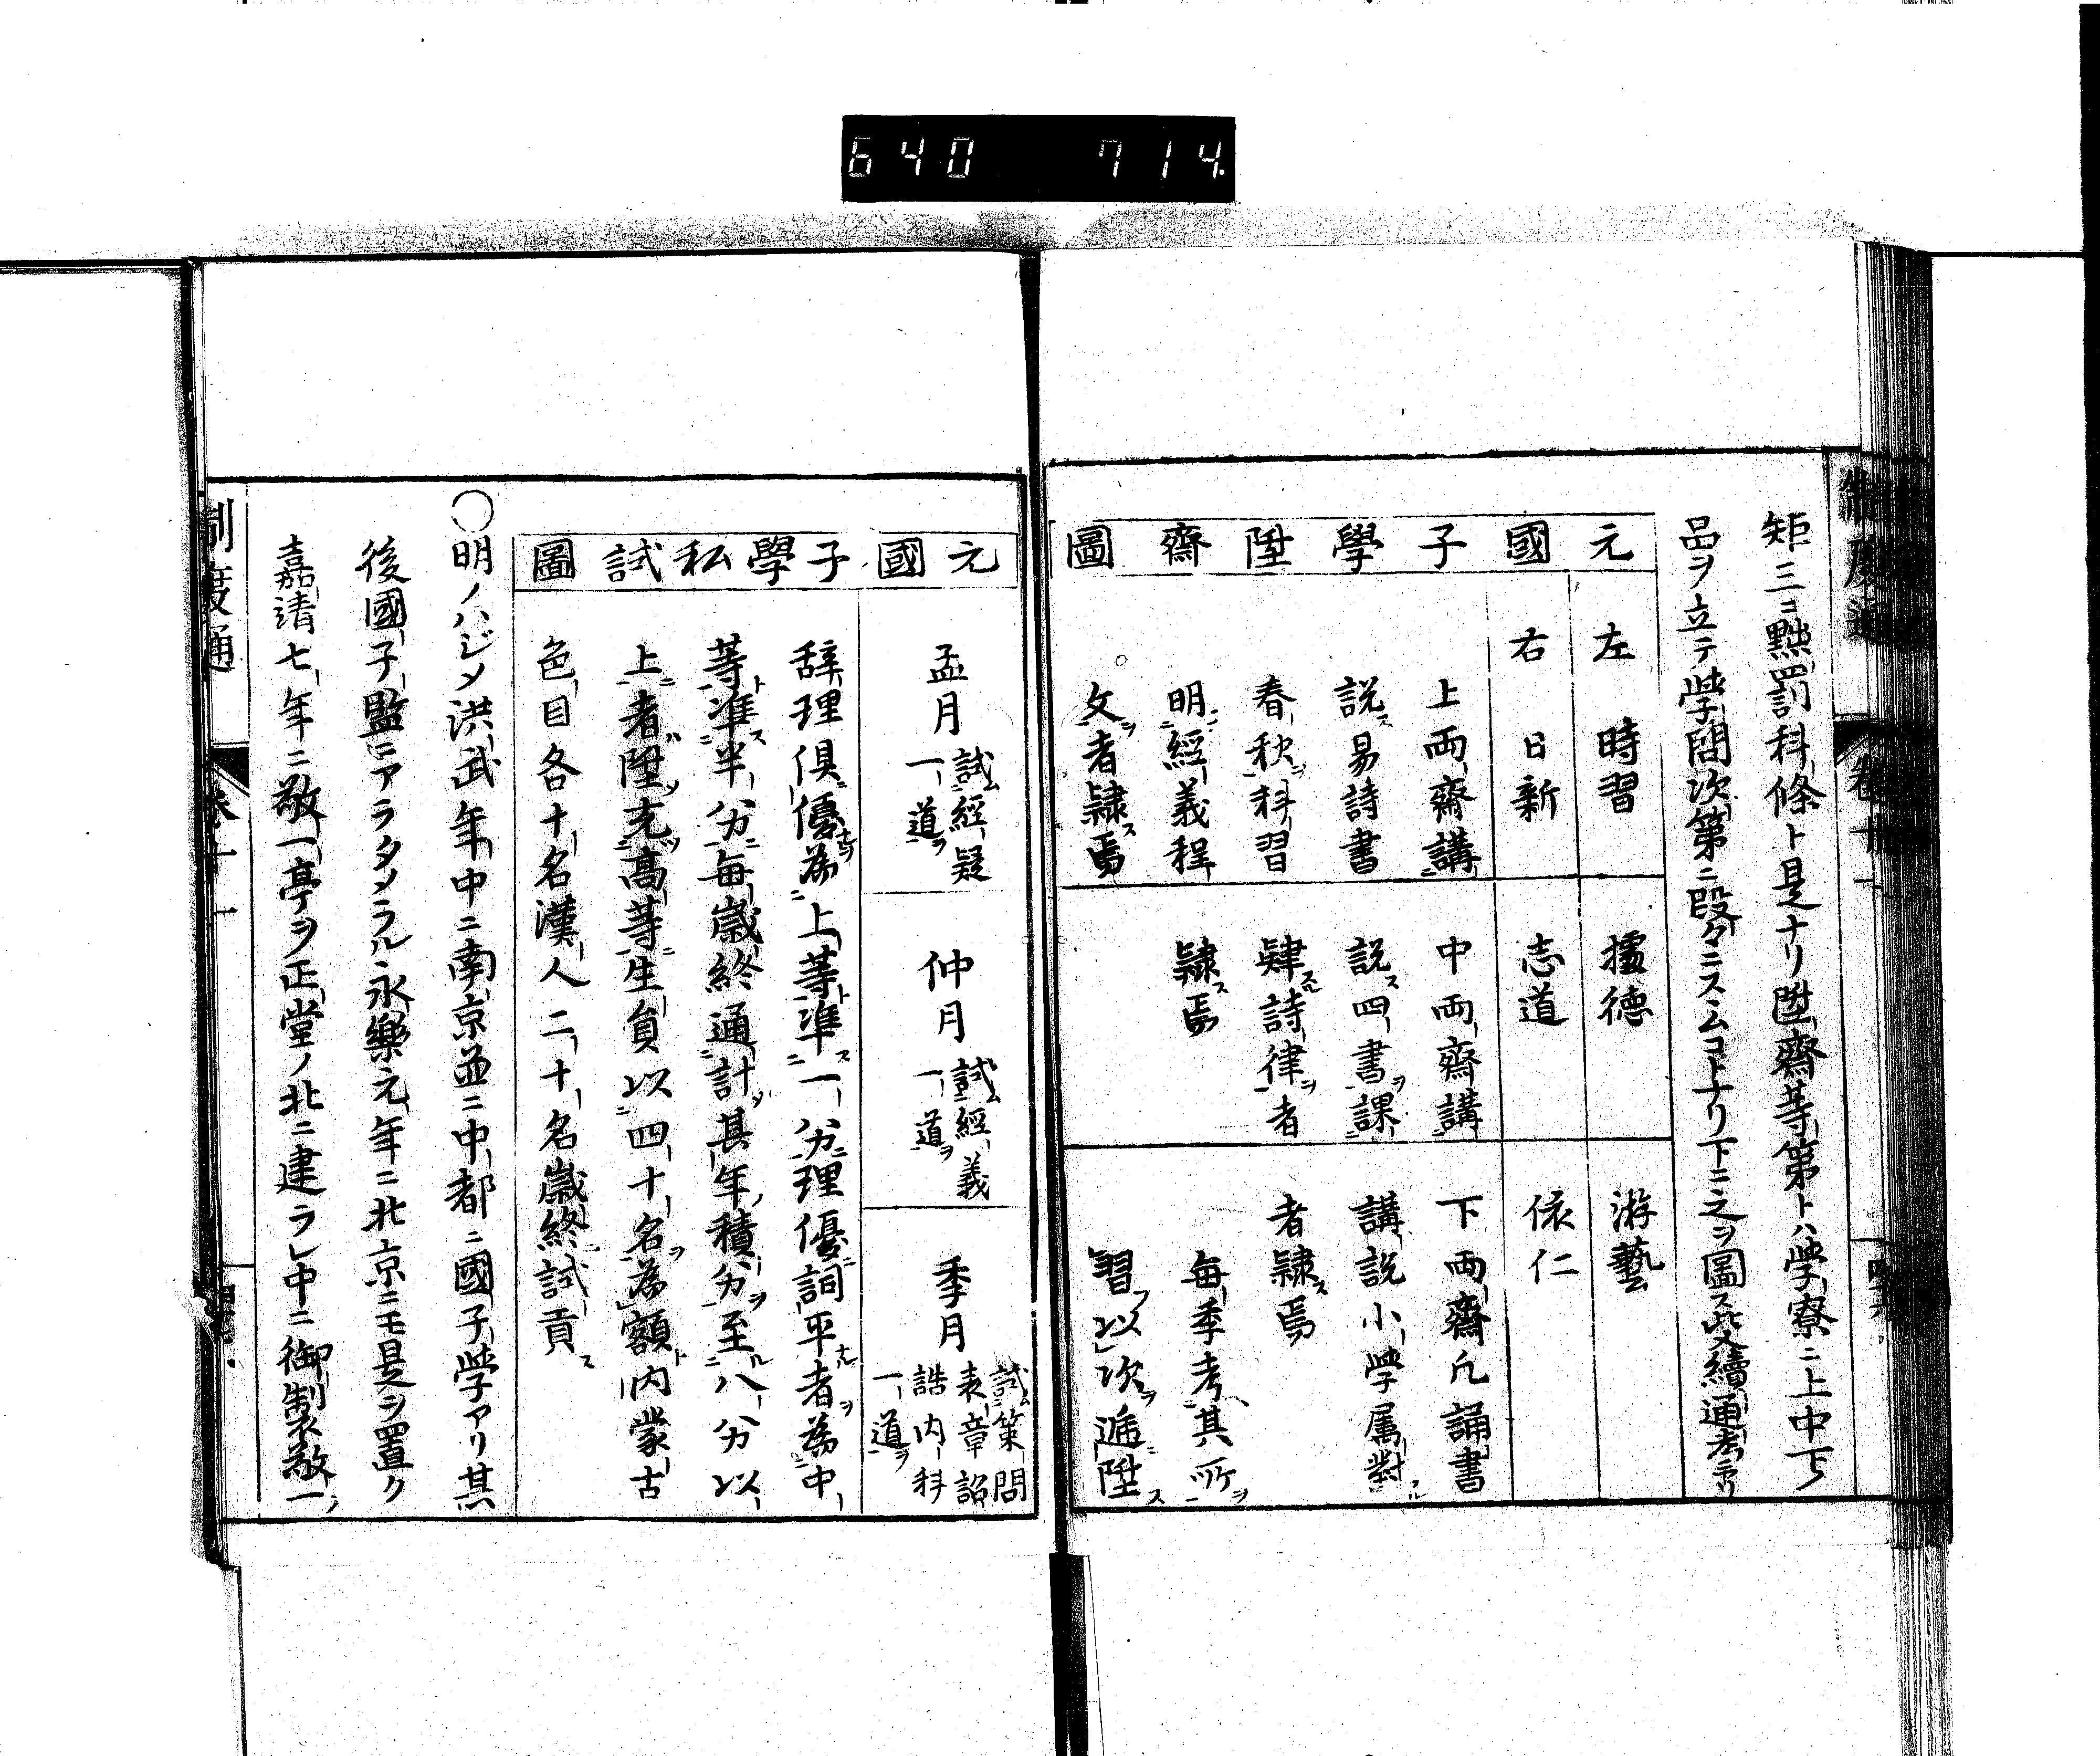 640 714.
矩三ニ黜罰科條ト是ナリ陞齋等第トハ学寮ニ上中下ノ
品ヲ立テ学問次第ニ段々ニスヽムコトナリ下ニ之ヲ圖ス此文續通考ニアリ
元國子學陞齋圖
左 時習 據德 游藝
右 日新 志道 依仁
上両齋講
説易詩書
春秋科習
明經義程
文者隷焉
中両齋講
説四書課
肄詩律者
隷焉
下両齋凡誦書
講説小学属對
者隷焉
毎季考其所
習以次遞陞
元國子學私試圖
孟月 試經疑
一道
仲月 試經義
一道
季月 試策問
表章詔
誥内科
一道
辞理倶優為上等準一分理優詞平者為中
等準半分毎歳終通計其年積分至八分以
上者陞充高等生員以四十名為額内蒙古
色目各十名漢人二十名歳終試貢
○明ノハジメ洪武年中ニ南京並ニ中都ニ國子学アリ其
後國子監ニアラタメラル永樂元年ニ北京ニモ是ヲ置ク
嘉靖七年ニ敬一亭ヲ正堂ノ北ニ建ラレ中ニ御製敬一
制度通 卷十一